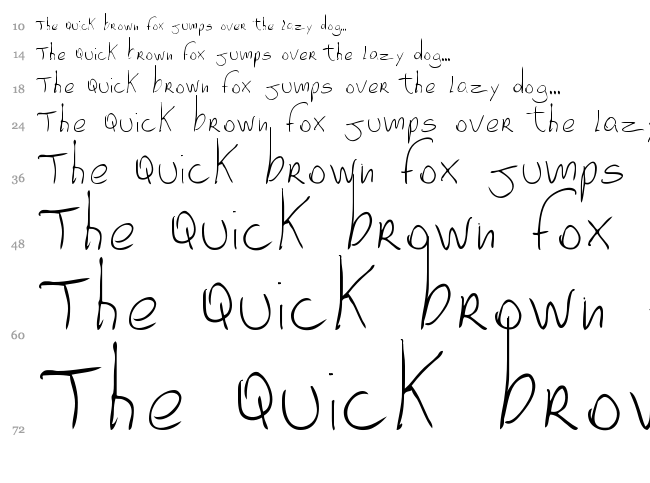 10 The Quick brown fox jumps over the lazy dog...
14 The Quick brown fox jumps over the lazy dog...
18 The Quick brown fox jumps over the lazy dog...
24 The Quick brown fox jumps over the laz
36 The Quick brown fox jumps
48 The Quick brown fox
60 The Quick brown
72 The Quick brow